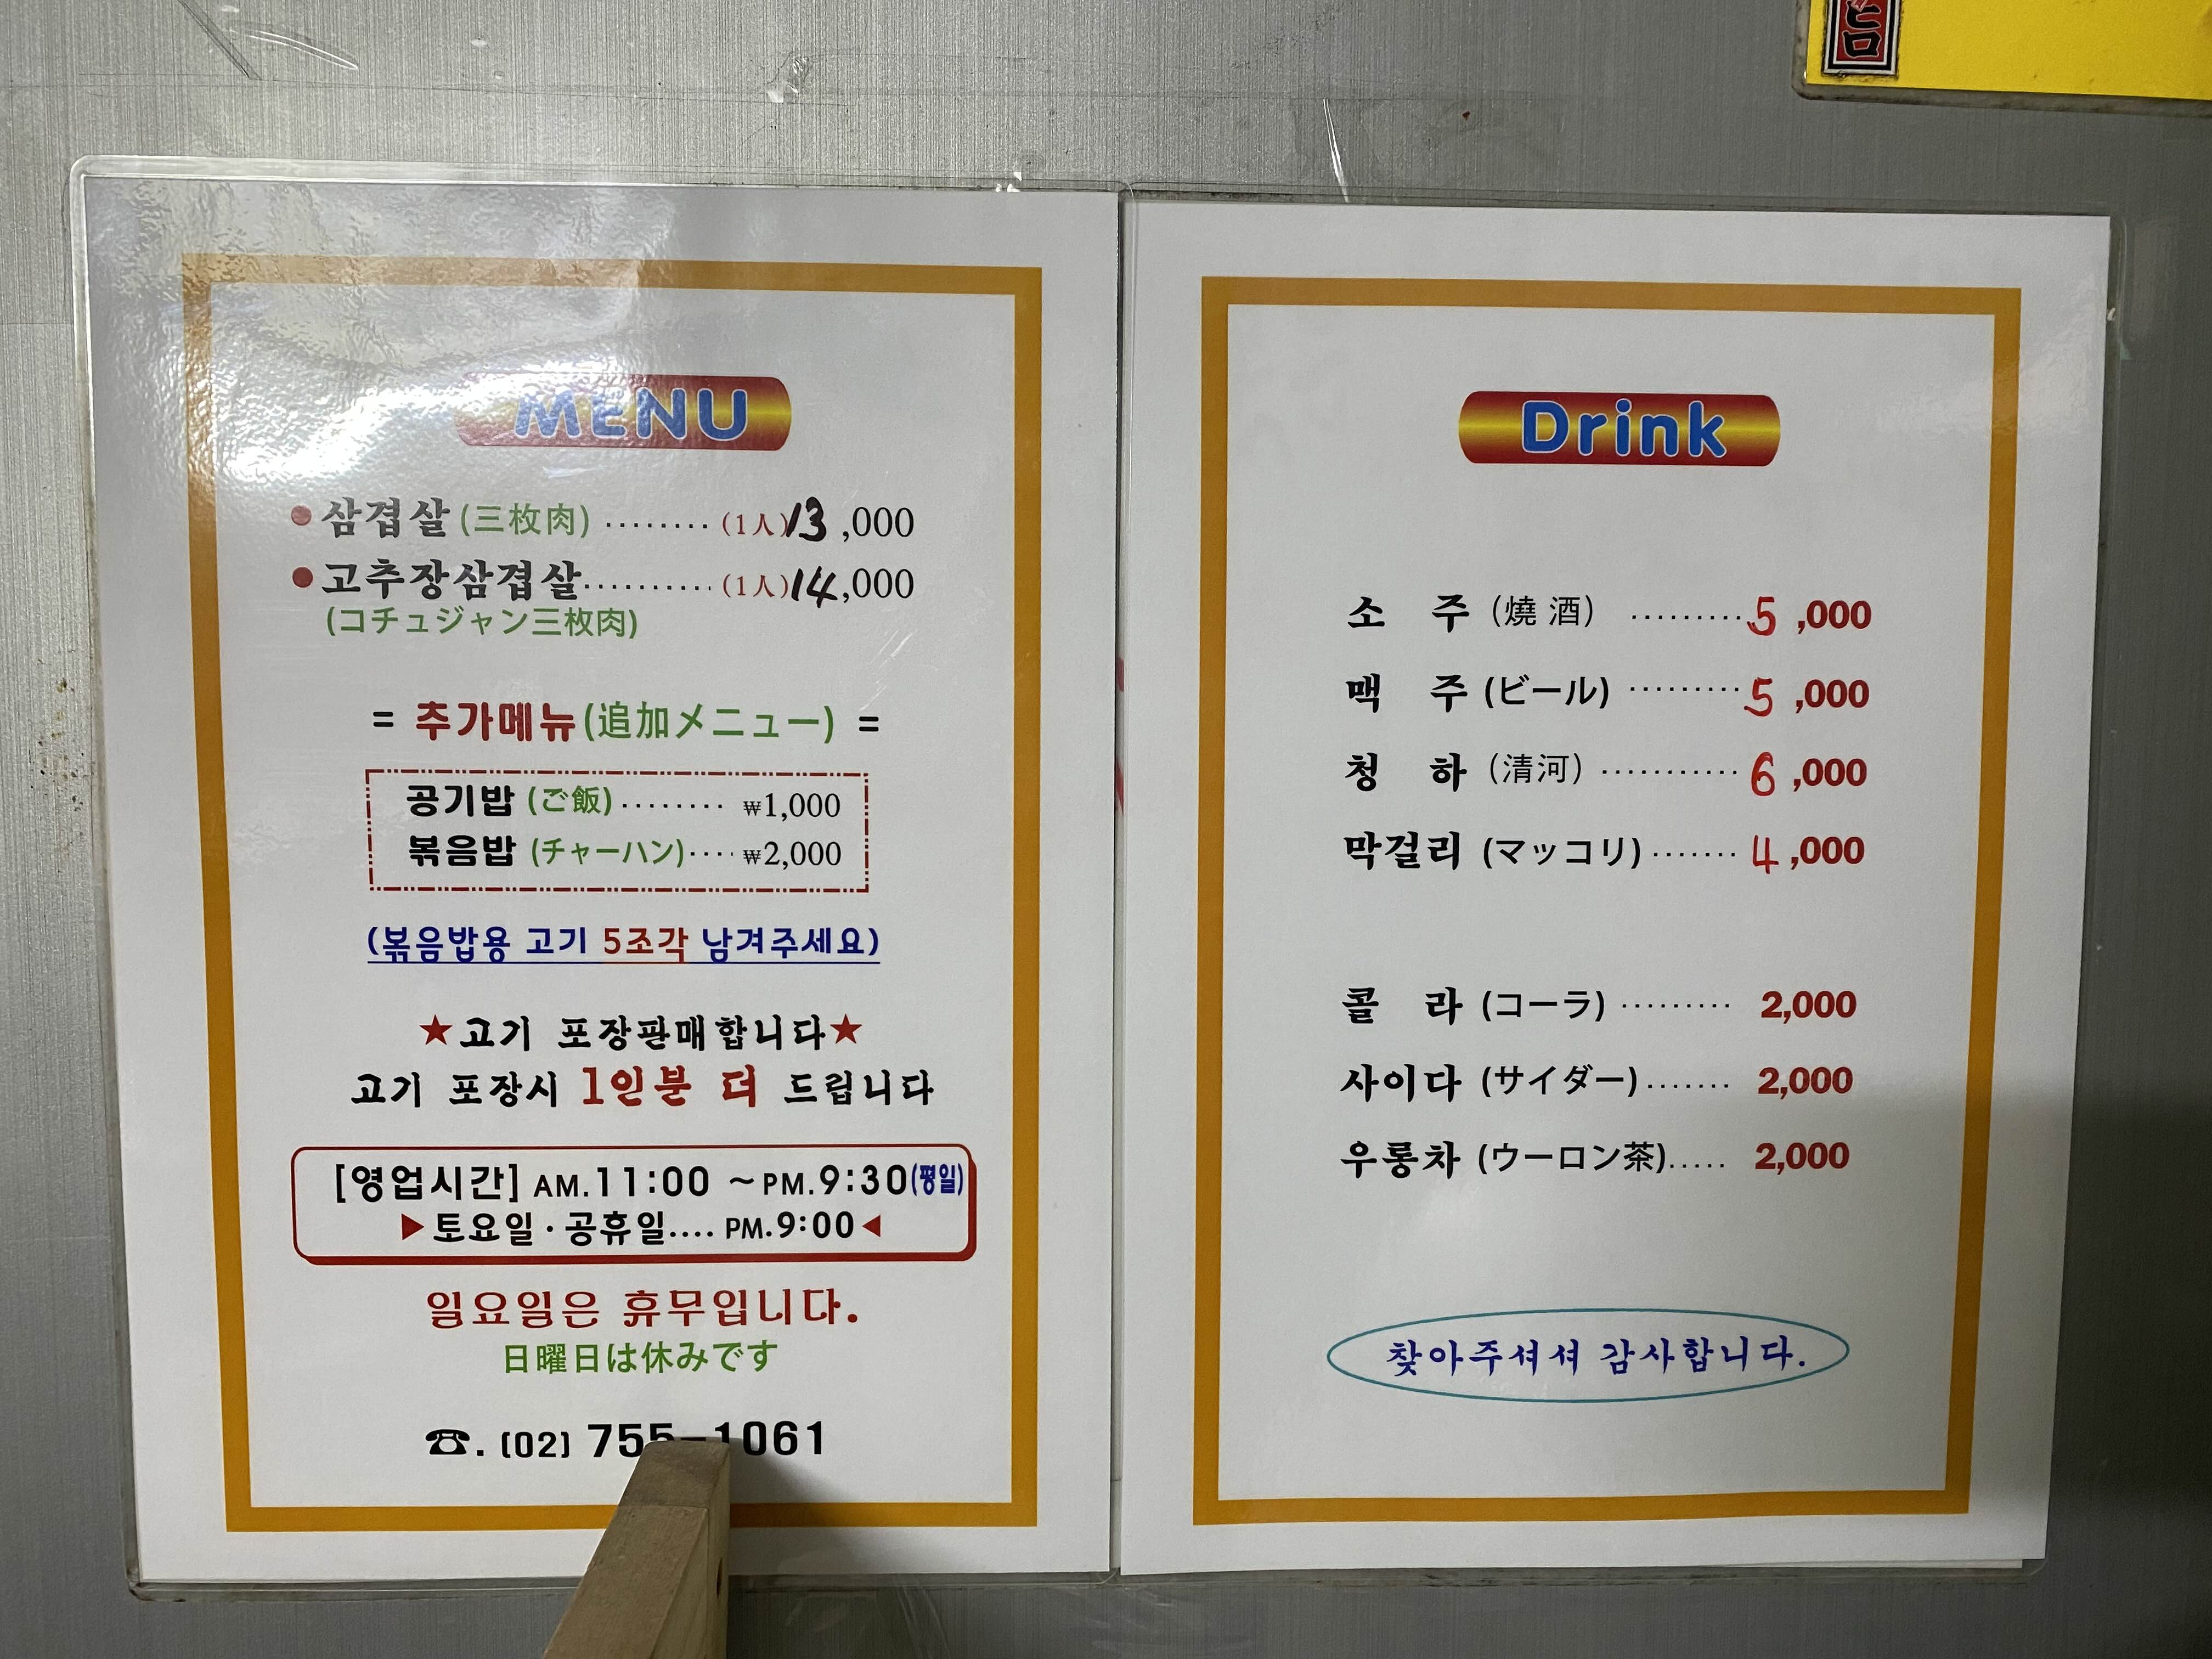 MENU
●삼겹살(三枚肉) ........ (1人)13,000
●고추장삼겹살.......... (1人)14,000
(コチュジャン三枚肉)
= 추가메뉴(追加メニュー) =
공기밥 (ご飯)........ ₩1,000
볶음밥 (チャーハン).... ₩2,000
(볶음밥용 고기 5조각 남겨주세요)
★고기 포장판매합니다★
고기 포장시 1인분 더 드립니다
[영업시간] AM.11:00 ~PM.9:30(평일)
▶토요일·공휴일.... PM.9:00◀
일요일은 휴무입니다.
日曜日は休みです
☎. (02) 755-1061
Drink
소 주 (燒 酒) .........5,000
맥 주 (ビール) .........5,000
청 하 (清河) ...........6,000
막걸리 (マッコリ).......4,000
콜 라 (コーラ) ......... 2,000
사이다 (サイダー)....... 2,000
우롱차 (ウーロン茶)..... 2,000
찾아주셔셔 감사합니다.